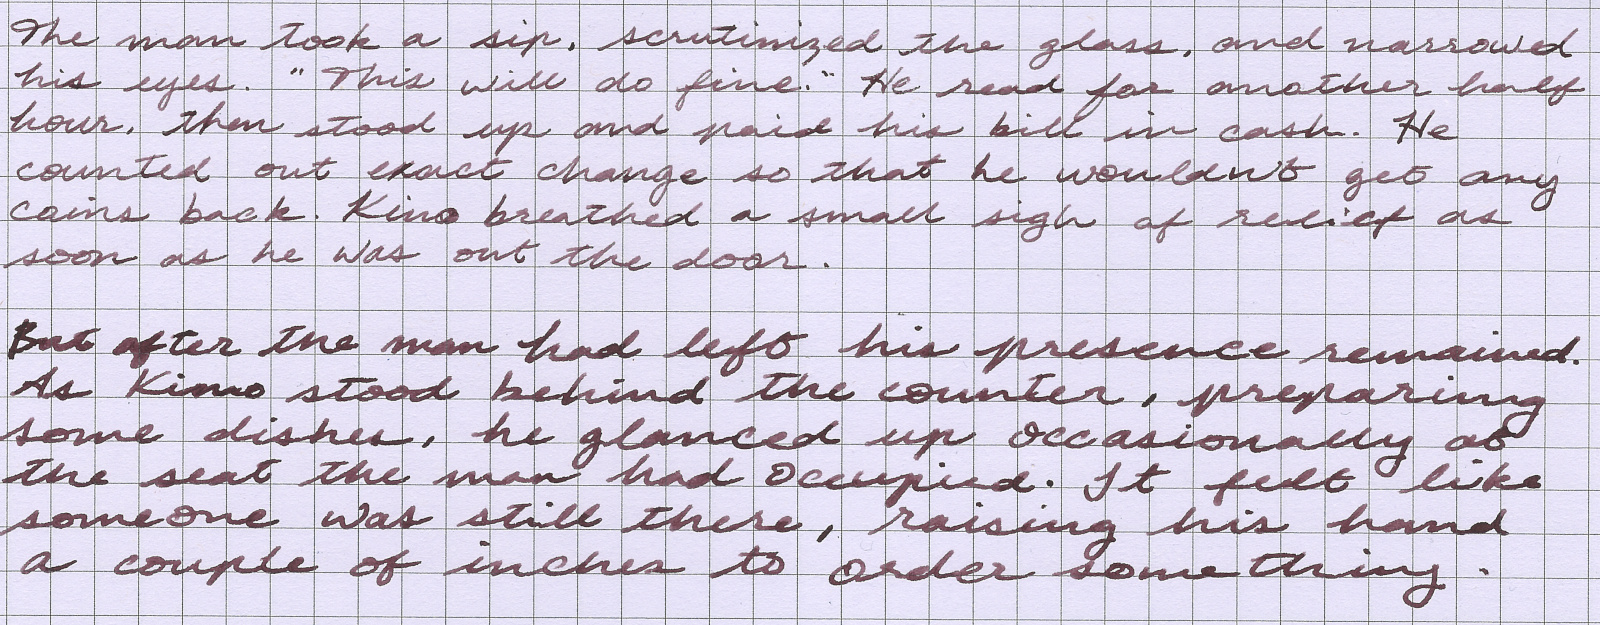 The man took a sip, scrutinized the glass, and narrowed
his eyes. "This will do fine." He read for another half
hour, then stood up and paid his bill in cash. He
counted out exact change so that he wouldn't get any
coins back. Kino breathed a small sigh of relief as
soon as he was out the door.
But after the man had left his presence remained.
As Kino stood behind the counter, preparing
some dishes, he glanced up occasionally at
the seat the man had occupied. It felt like
someone was still there, raising his hand
a couple of inches to order something.